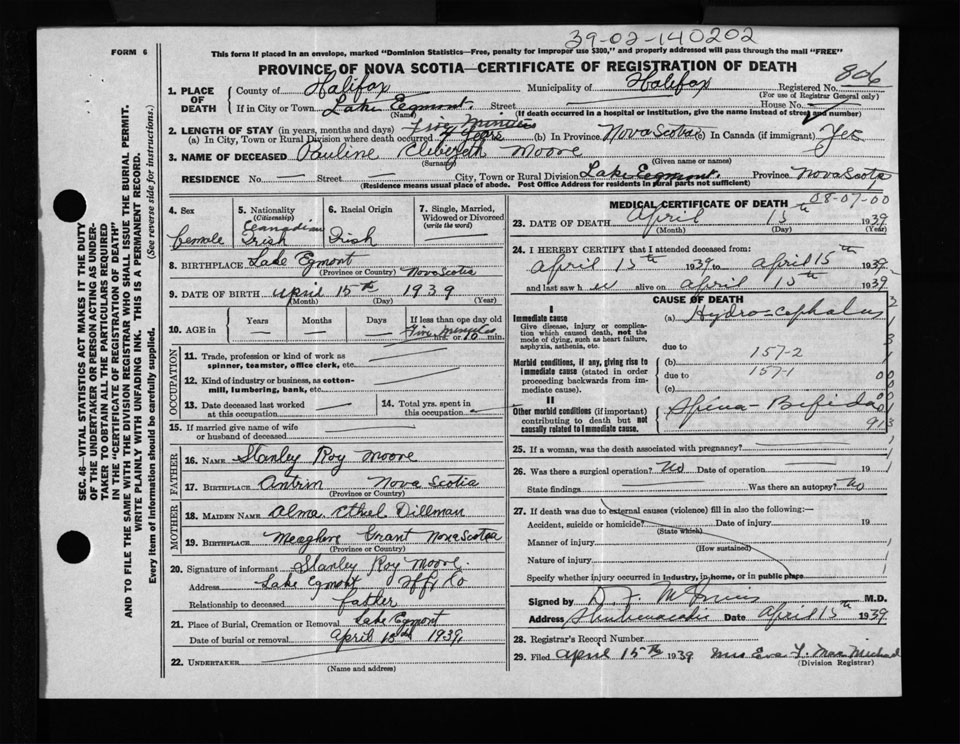 39-02-140202
FORM 6
This form if placed in an envelope, marked "Dominion Statistics—Free, penalty for improper use $300," and properly addressed will pass through the mail "FREE"
PROVINCE OF NOVA SCOTIA—CERTIFICATE OF REGISTRATION OF DEATH
SEC. 46—VITAL STATISTICS ACT MAKES IT THE DUTY
OF THE UNDERTAKER OR PERSON ACTING AS UNDER-
TAKER TO OBTAIN ALL THE PARTICULARS REQUIRED
IN THE "CERTIFICATE OF REGISTRATION OF DEATH"
AND TO FILE THE SAME WITH THE DIVISION REGISTRAR WHO SHALL ISSUE THE BURIAL PERMIT.
WRITE PLAINLY WITH UNFADING INK. THIS IS A PERMANENT RECORD.
Every item of information should be carefully supplied. (See reverse side for instructions.)
1. PLACE OF DEATH
County of Halifax Municipality of Halifax Registered No. 806
(For use of Registrar General only)
If in City or Town Lake Egmont. Street House No.
(Name) (If death occurred in a hospital or institution, give the name instead of street and number)
2. LENGTH OF STAY (in years, months and days) Five Minutes
(a) In City, Town or Rural Division where death occurred (b) In Province Nova Scotia (c) In Canada (if immigrant) Yes
3. NAME OF DECEASED Pauline Moore
(Surname) (Given name or names)
RESIDENCE No. — Street — City, Town or Rural Division Lake Egmont, Province Nova Scotia
(Residence means usual place of abode. Post Office Address for residents in rural parts not sufficient)
4. Sex
female
5. Nationality (Citizenship)
Canadian
Irish
6. Racial Origin
Irish
7. Single, Married, Widowed or Divorced (write the word)
8. BIRTHPLACE Lake Egmont Nova Scotia
(Province or Country)
9. DATE OF BIRTH April 15th 1939
(Month) (Day) (Year)
10. AGE in
Years Months Days If less than one day old
Five minutes
hrs. or 10 min.
OCCUPATION
11. Trade, profession or kind of work as spinner, teamster, office clerk, etc.
12. Kind of industry or business, as cotton-mill, lumbering, bank, etc.
13. Date deceased last worked at this occupation
14. Total yrs. spent in this occupation
15. If married give name of wife or husband of deceased
FATHER
16. NAME Stanley Roy Moore
17. BIRTHPLACE Antrim Nova Scotia
(Province or Country)
MOTHER
18. MAIDEN NAME Alma Ethel Dillman
19. BIRTHPLACE Meaghers Grant Nova Scotia
(Province or Country)
20. Signature of informant Stanley Roy Moore.
Address Lake Egmont Hfx Co
Relationship to deceased father
21. Place of Burial, Cremation or Removal Lake Egmont
Date of burial or removal April 1939
22. UNDERTAKER
(Name and address)
MEDICAL CERTIFICATE OF DEATH 08-07-00
23. DATE OF DEATH April 15th 1939
(Month) (Day) (Year)
24. I HEREBY CERTIFY that I attended deceased from:
April 15th 1939 to April 15th 1939
and last saw her alive on April 15th 1939
CAUSE OF DEATH
I
Immediate cause
Give disease, injury or complication which caused death, not the mode of dying, such as heart failure, asphyxia, asthenia, etc.
(a) Hydro-cephalus
due to
Morbid conditions, if any, giving rise to immediate cause (stated in order proceeding backwards from immediate cause).
(b) 157-2
due to 157-1
(c)
II
Other morbid conditions (if important) contributing to death but not causally related to immediate cause.
Spina-Bifida
25. If a woman, was the death associated with pregnancy?
26. Was there a surgical operation? No Date of operation 19
State findings Was there an autopsy? No
27. If death was due to external causes (violence) fill in also the following:—
Accident, suicide or homicide? Date of injury 19
(State which)
Manner of injury
(How sustained)
Nature of injury
Specify whether injury occurred in industry, in home, or in public place
Signed by D. F. McInnis M.D.
Address Shubenacadie Date April 15th 1939
28. Registrar's Record Number
29. Filed April 15th 1939 Mrs Eva
(Division Registrar)